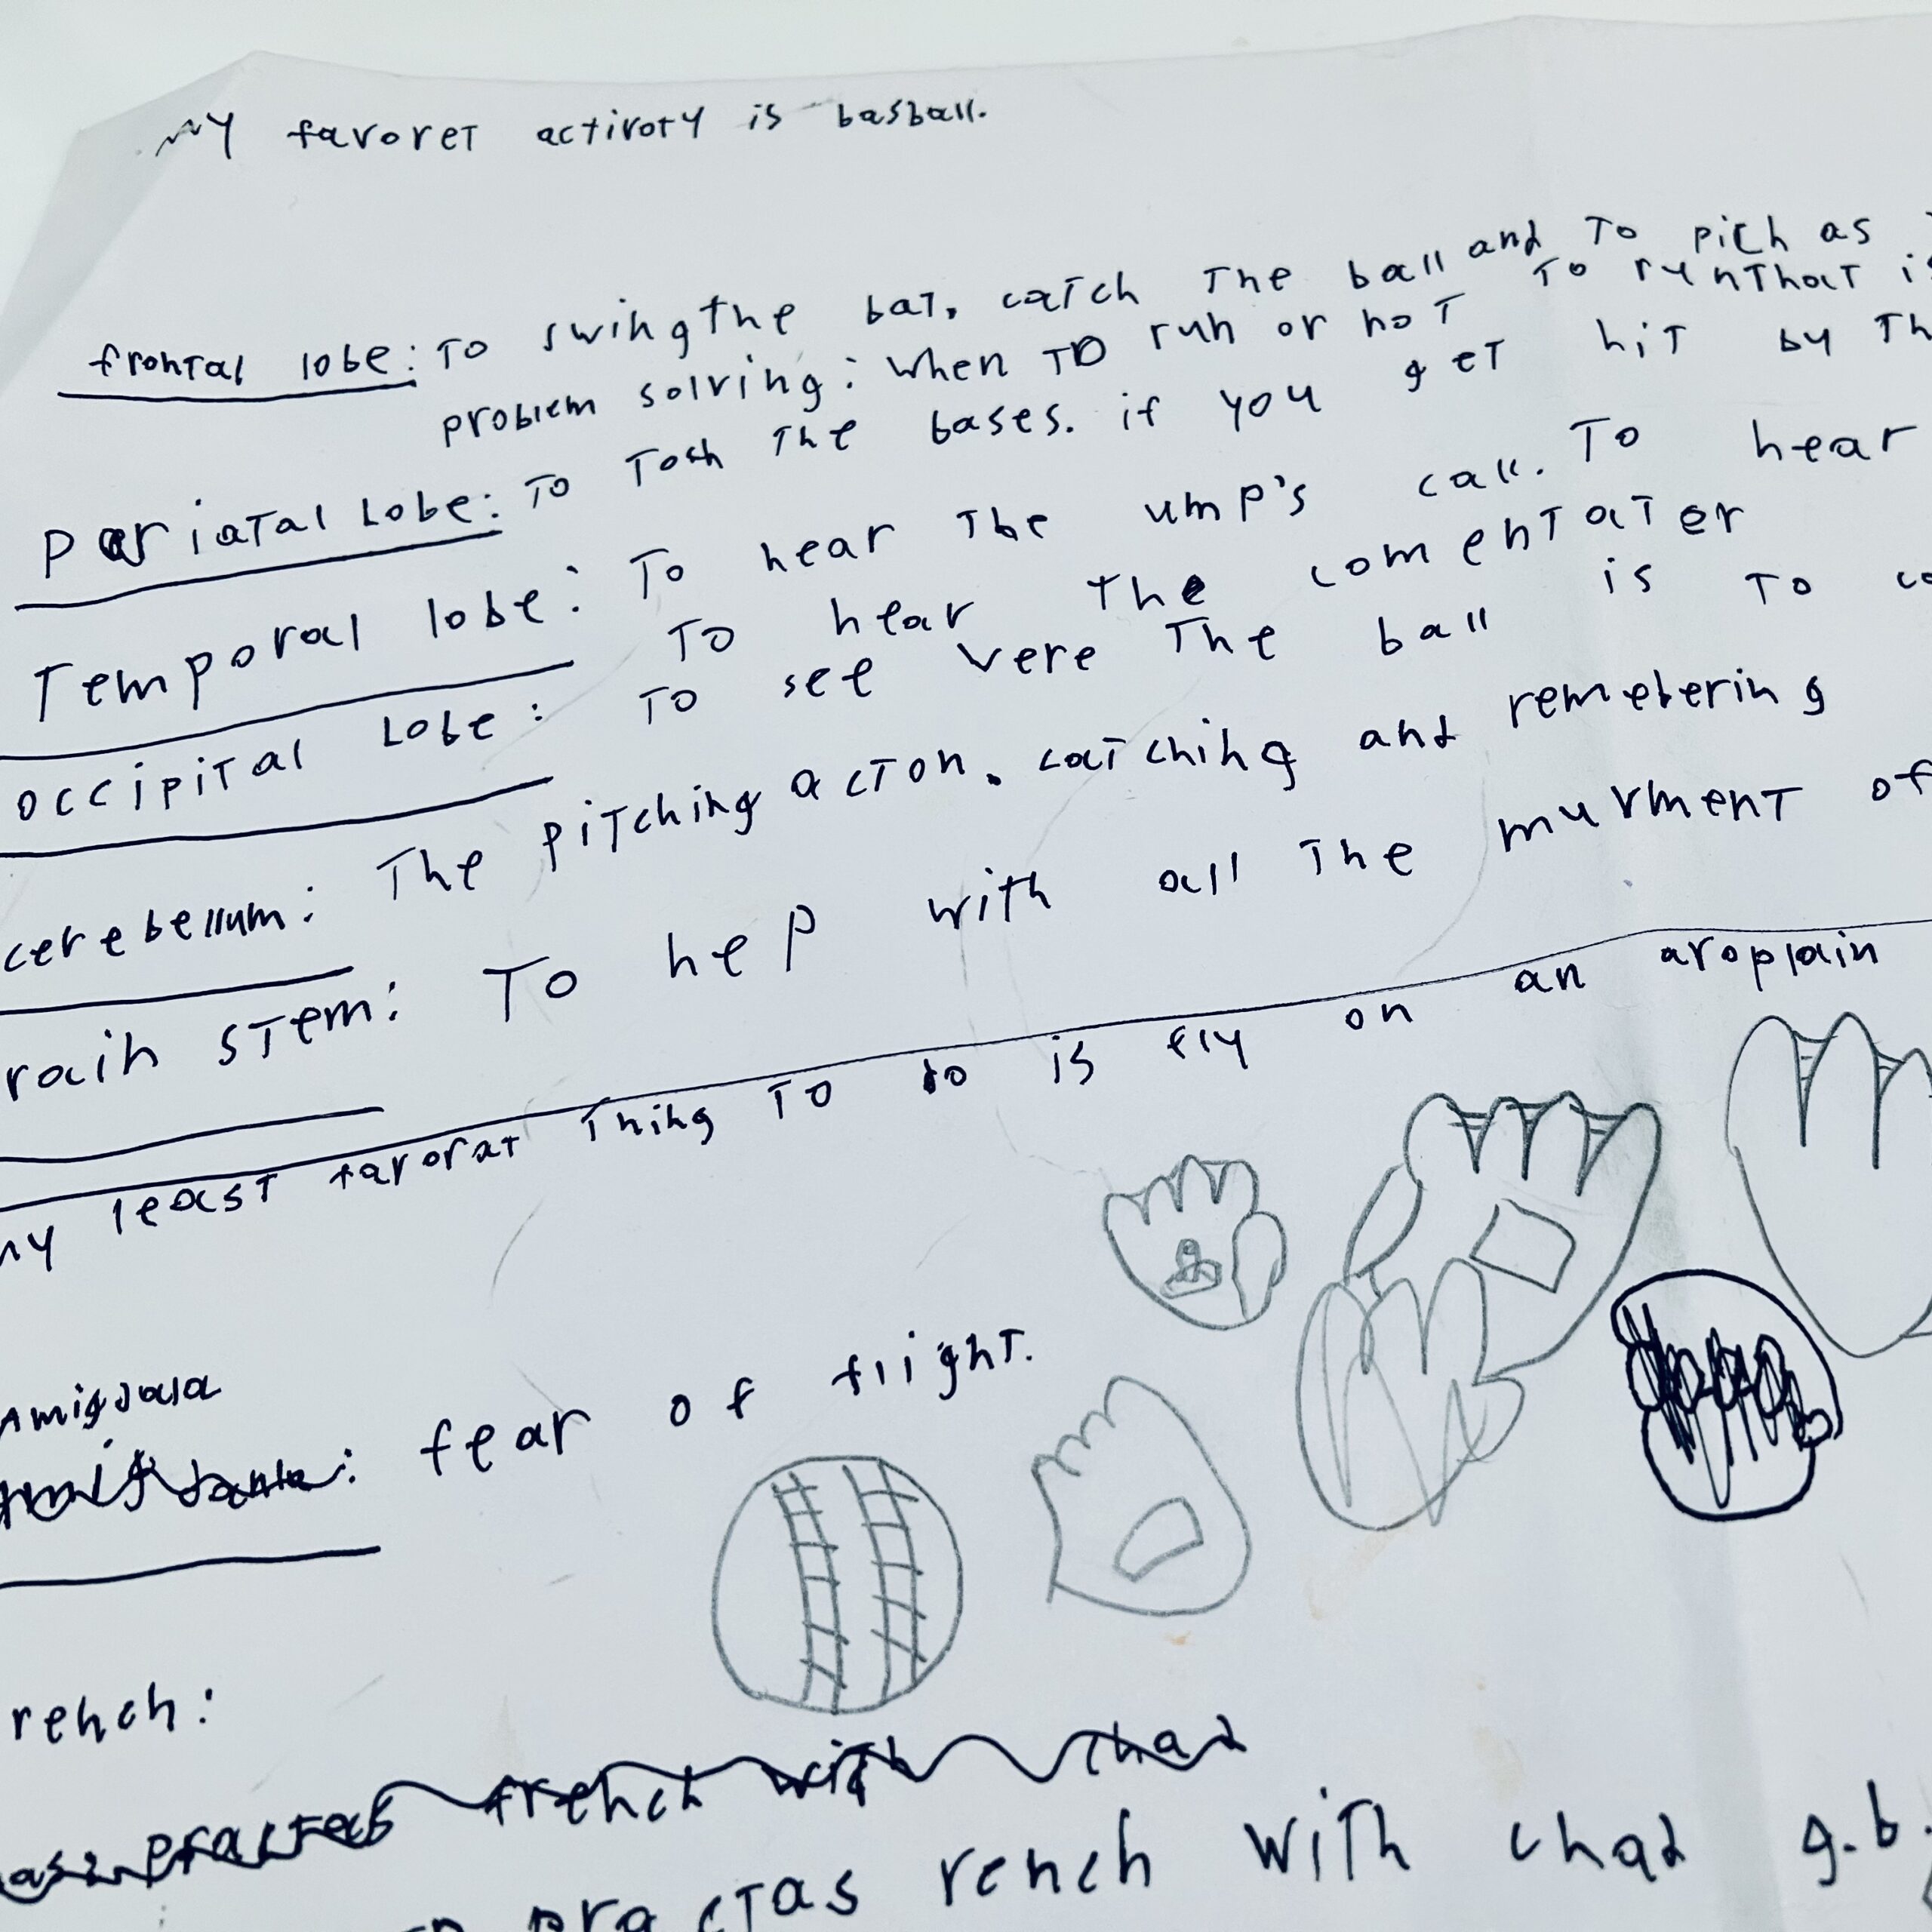 My favoret activoty is basball.
frontal lobe: To swing the bat, catch the ball and to pich as
problem solving: when to run or not to run that is
Pariatal Lobe: To toch the bases. if you get hit by th
Temporal lobe: To hear the ump's call. To hear
To hear the comentater
occipital Lobe: To see vere the ball is to c
cerebellum: The pitching acton. catching and remebering
rain stem: To hep with all the murment of
my least favorat thing to do is fly on an aroplain
Amigdala
: fear of flight.
rench:
french with chad
practas rench with chad g.b.